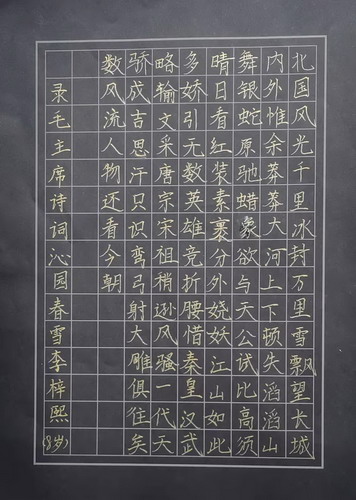 北国风光千里冰封万里雪飘望长城
内外惟余莽莽大河上下顿失滔滔山
舞银蛇原驰蜡象欲与天公试比高须
晴日看红装素裹分外娆妖江山如此
多娇引无数英雄竞折腰惜秦皇汉武
略输文采唐宗宋祖稍逊风骚一代天
骄成吉思汗只识弯弓射大雕俱往矣
数风流人物还看今朝
录毛主席诗词沁园春雪李梓熙(8岁)